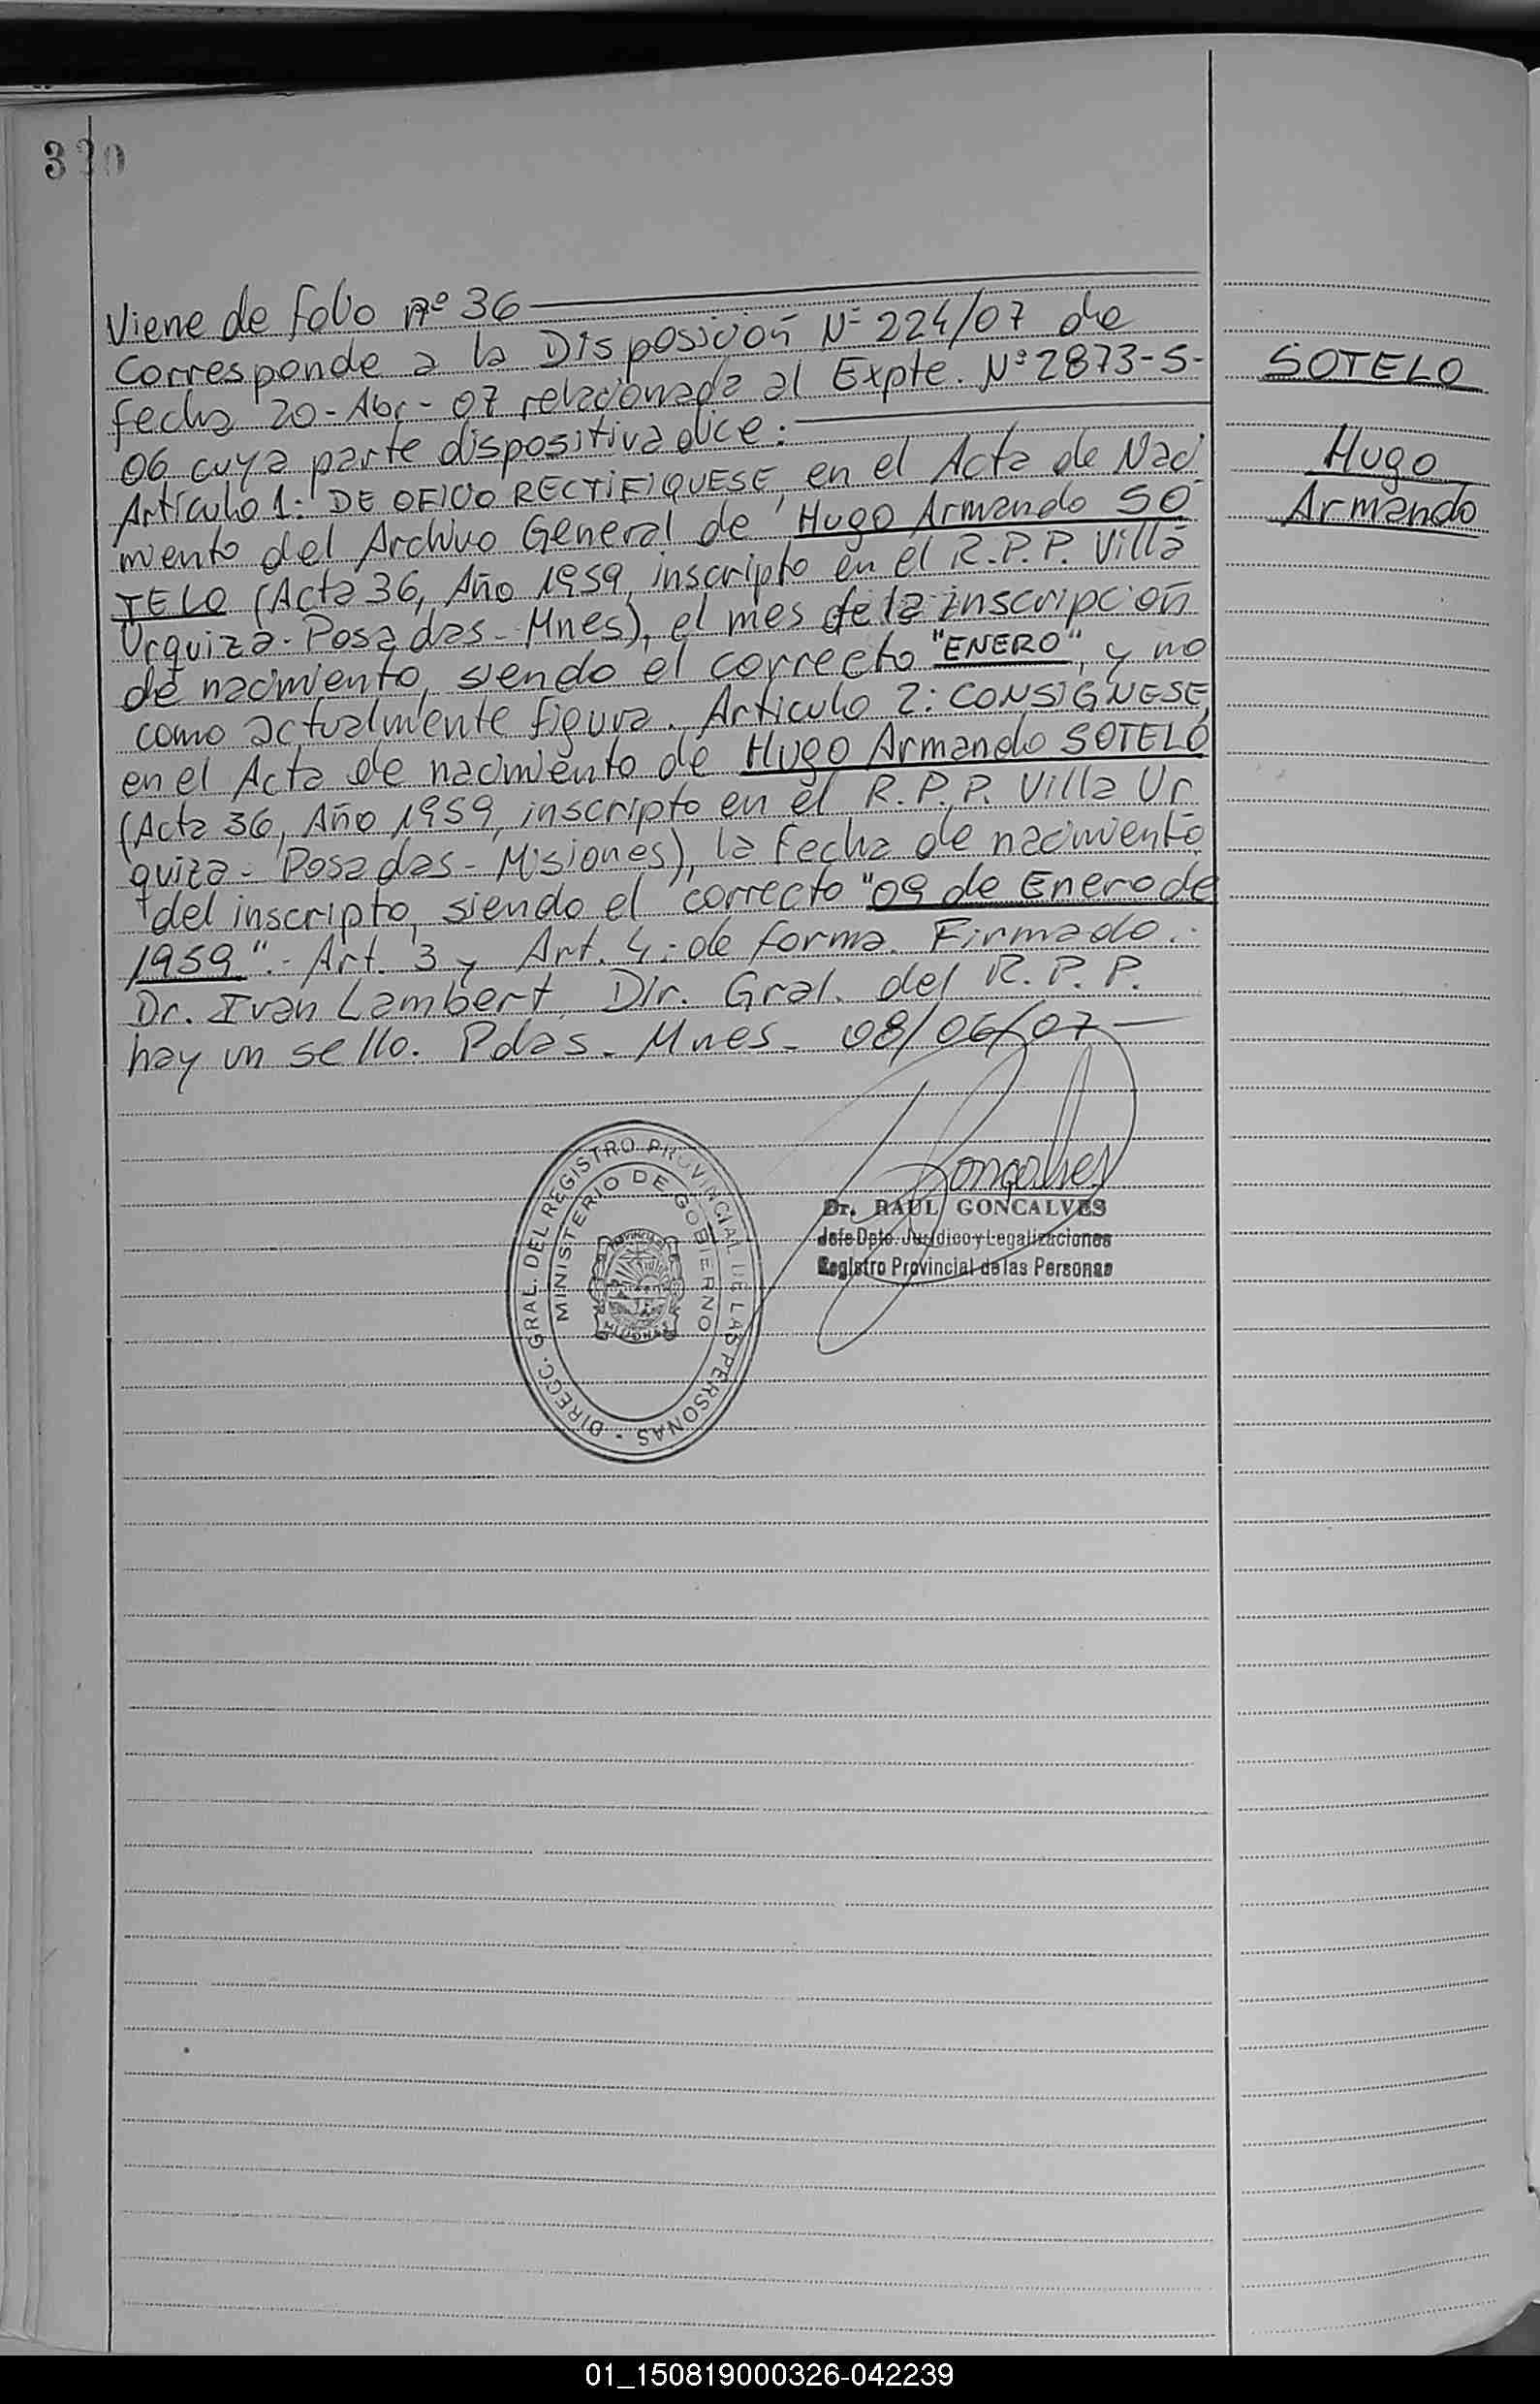 Viene de folio Nº 36
Corresponde a la Disposición Nº 224/07 de
fecha 20-Abr-07 relacionada al Expte. Nº 2873-S-
06 cuya parte dispositiva dice:
Artículo 1: DE OFICIO RECTIFIQUESE, en el Acta de Naci
miento del Archivo General de Hugo Armando SO
TELO (Acta 36, Año 1959, inscripto en el R.P.P. Villa
Urquiza-Posadas-Mnes), el mes de la inscripción
de nacimiento, siendo el correcto "ENERO", y no
como actualmente figura. Artículo 2: CONSIGNESE,
en el Acta de nacimiento de Hugo Armando SOTELO
(Acta 36, Año 1959, inscripto en el R.P.P. Villa Ur
quiza-Posadas-Misiones), la fecha de nacimiento
del inscripto, siendo el correcto "09 de Enero de
1959".- Art. 3 y Art. 4: de forma. Firmado.:
Dr. Ivan Lambert, Dir. Gral. del R.P.P.
hay un sello. Pdas. Mnes - 08/06/07
SOTELO
Hugo
Armando
DIRECC. GRAL. DEL REGISTRO PROVINCIAL DE LAS PERSONAS
MINISTERIO DE GOBIERNO
PROVINCIA DE
MISIONES
Goncalves
Dr. RAUL GONCALVES
Jefe Dpto. Jurídico y Legalizaciones
Registro Provincial de las Personas
01_150819000326-042239